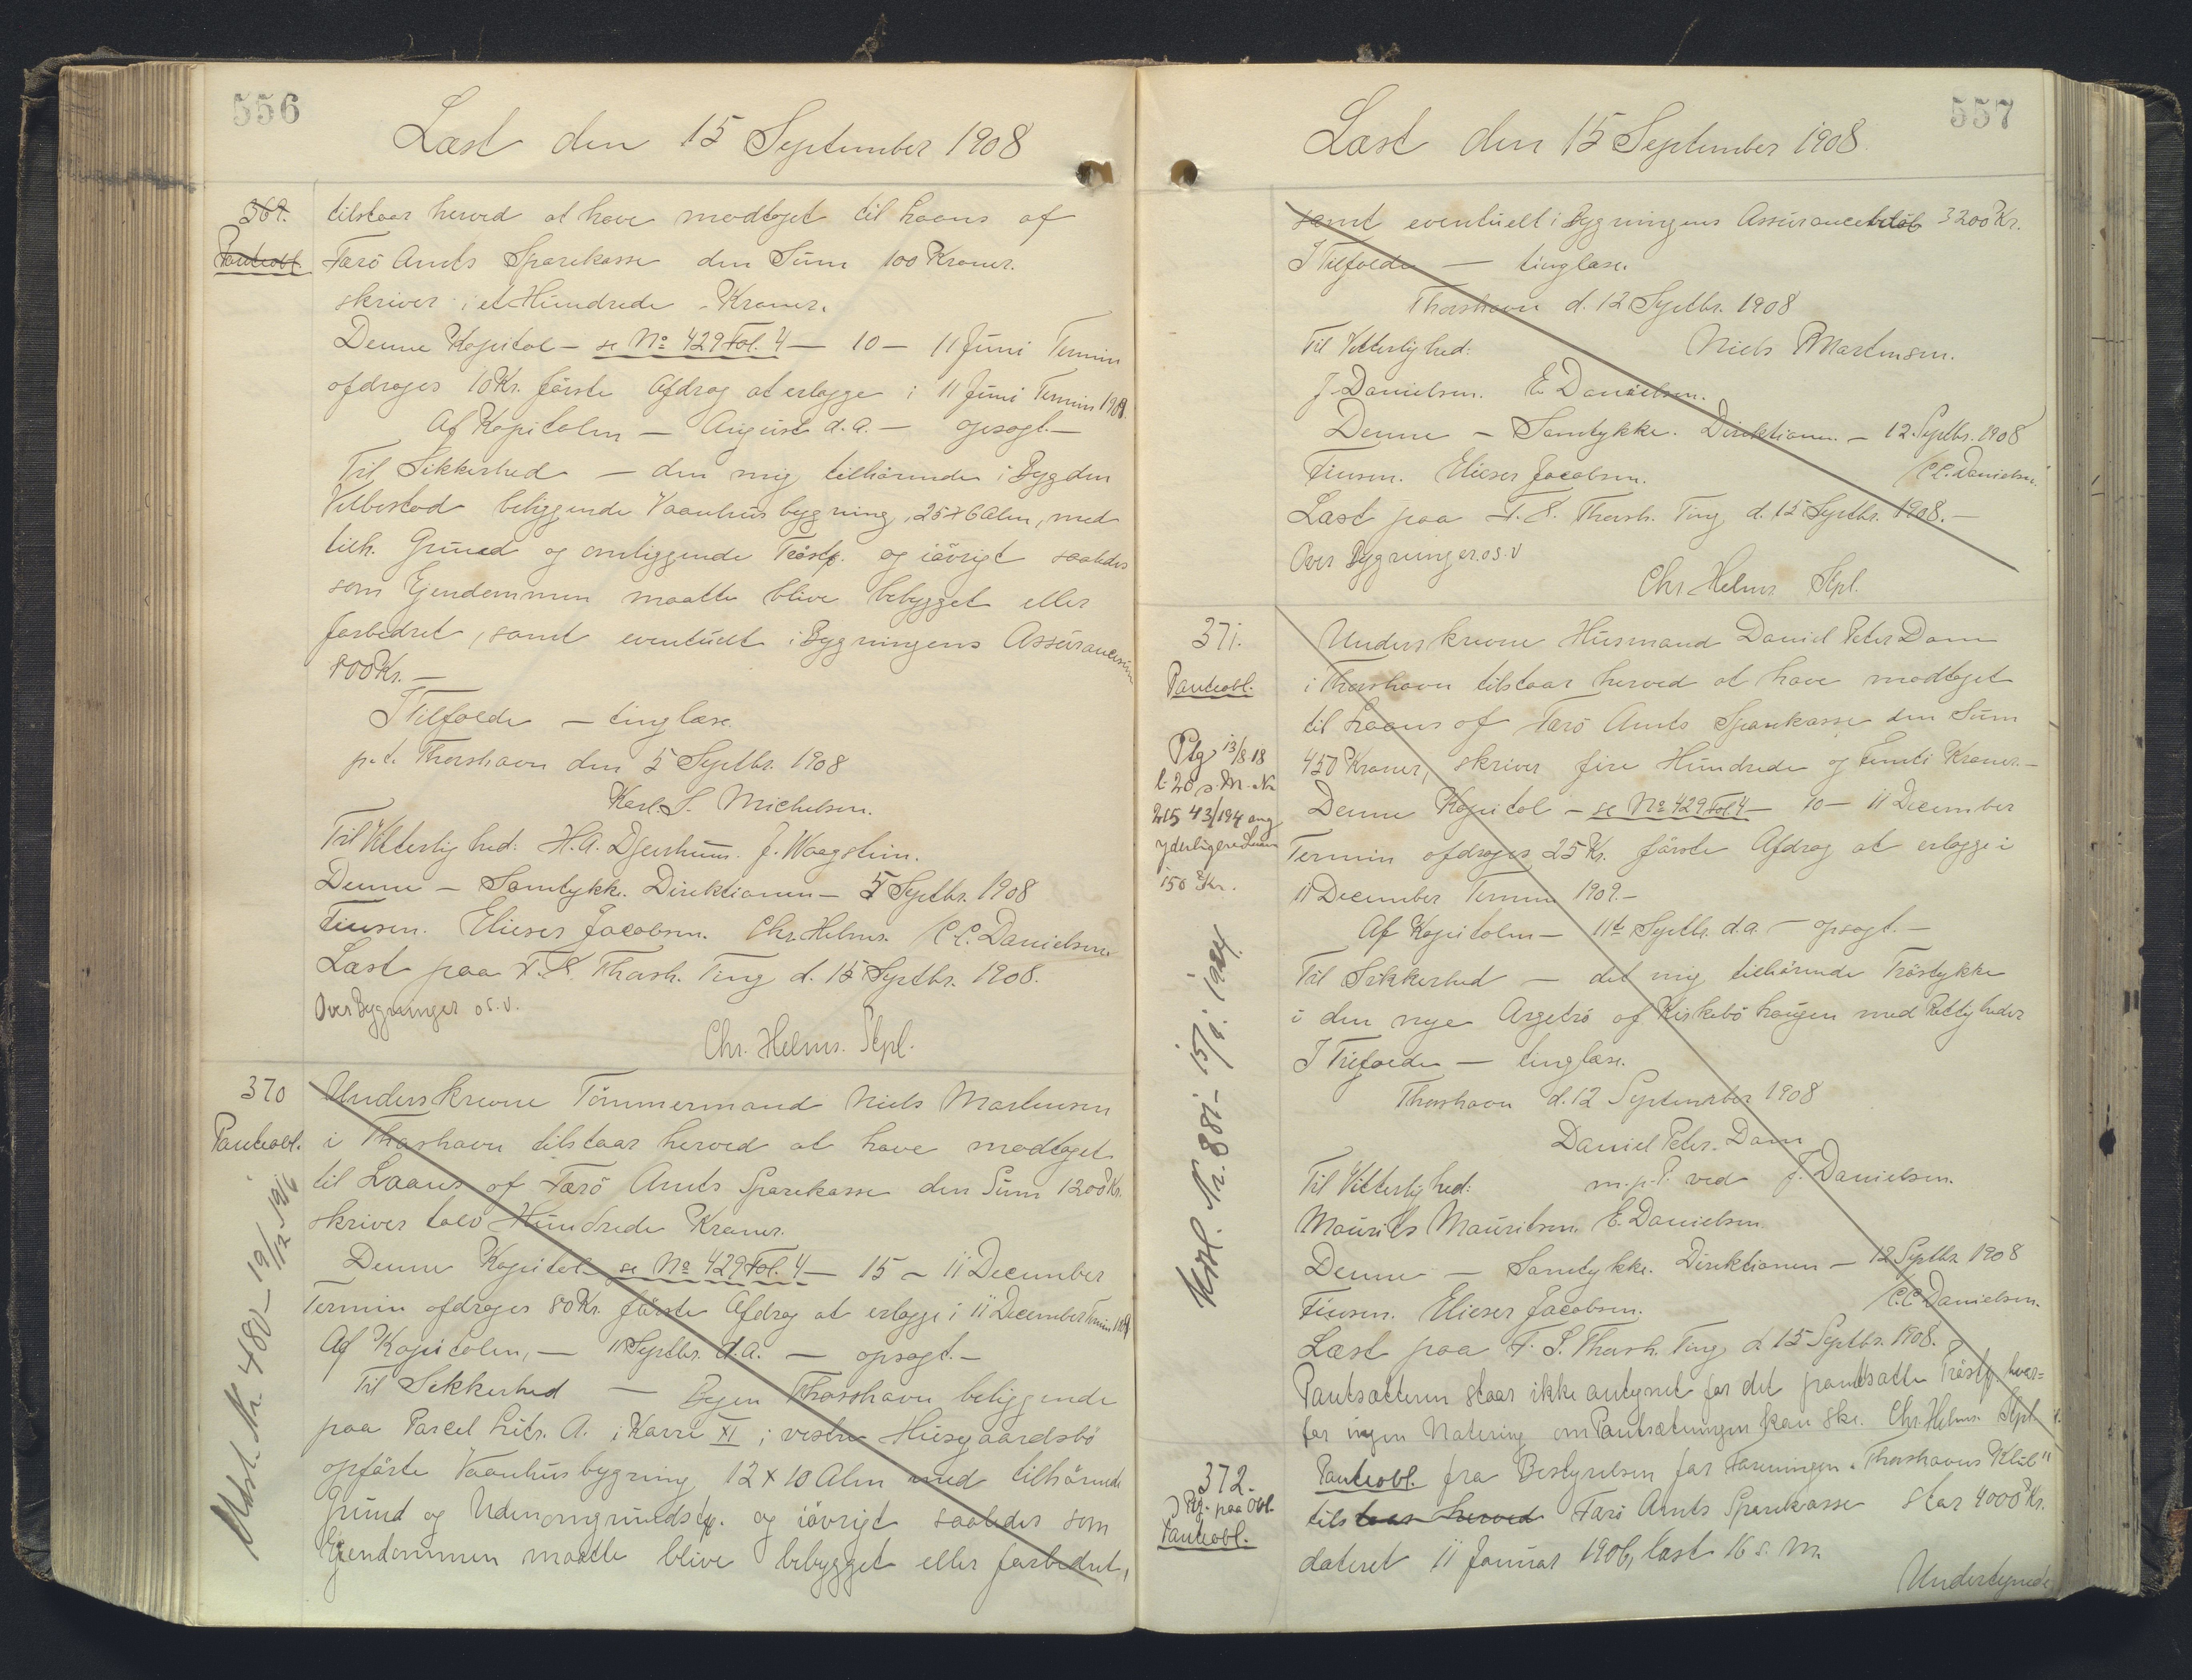 556
Læst den 15 September 1908
369.
Panteobl.
tilstaar herved at have modtaget til Laans af
Færö Amts Sparekasse den Sum 100 Kroner.
skriver et Hundrede Kroner.
Denne Kapital – se No 429 Fol. 4 – 10 – 11 Juni Termin
afdrages 10 Kr. förste Afdrag at erlægge i 11 Juni Termin 1909.
Af Kapitalen – August d.a. – opsagt. –
Til Sikkerhed – den mig tilhörende i Bygden
Velbestad beliggende Vaanhusbygning, 25 x 6 Alen, med
tilh. Grund og omliggende Tröstk. og iövrigt saaledes
som Ejendommen maatte blive bebygget eller
forbedret, samt eventuelt i Bygningens Assurancesum
800 Kr. –
I Tilfælde – tinglæse.
p.t. Thorshavn den 5 Septbr. 1908
Karl S. Michelsen.
Til Vitterlighed: H.A. Djurhuus. J. Waagstein.
Denne – Samtykke. Direktionen – 5 Septbr. 1908
Finsen. Elieser Jacobsen. Chr. Helms. C.C. Danielsen
Læst paa F.S. Thorsh. Ting d. 15 Septbr. 1908.
Over Bygninger o.s.v.
Chr. Helms. Stpl.
370
Panteobl.
Udsl. Nr. 480 – 19/12 1916
Underskrevne Tömmermand Niels Martensen
i Thorshavn tilstaar herved at have modtaget
til Laans af Færö Amts Sparekasse den Sum 1200 Kr.
skriver tolv Hundrede Kroner.
Denne Kapital – se No 429 Fol. 4 – 15 – 11 December
Termin afdrages 80 Kr. förste Afdrag at erlægge i 11 December Termin 1909
Af Kapitalen, – 11 Septbr. d.a. – opsagt. –
Til Sikkerhed – Byen Thorshavn beliggende
paa Parcel Litr. A. i Karré XI i vestre Husgaardsbö
opförte Vaanhusbygning 12 x 10 Alen med tilhörende
Grund og Udenomgrundstk. og iövrigt saaledes som
Ejendommen maatte blive bebygget eller forbedret,
557
Læst den 15 September 1908
samt eventuelt i Bygningens Assurancebelöb 3200 Kr.
I Tilfælde – tinglæse.
Thorshavn d. 12 Septbr. 1908
Til Vitterlighed: Niels P Martensen.
J. Danielsen. E. Danielsen.
Denne – Samtykke. Direktionen – 12. Septbr. 1908
Finsen. Elieser Jacobsen. C.C. Danielsen.
Læst paa F.S. Thorsh. Ting d. 15 Septbr. 1908. –
Over Bygninger o.s.v
Chr. Helms. Stpl.
371.
Panteobl.
Ptg 13/8 18
l. 20 s. M. Nr.
215 43/194 ang
yderligere Laan
150 Kr.
Udsl. Nr. 881 –
Underskrevne Husmand Daniel Peter Dam
i Thorshavn tilstaar herved at have modtaget
til Laans af Færö Amts Sparekasse den Sum
450 Kroner, skriver fire Hundrede og femti Kroner. –
Denne Kapital – se No 429 Fol 4 – 10 – 11 December
Termin afdrages 25 Kr. förste Afdrag at erlægge i
11 December Termin 1909. –
Af Kapitalen – 11te Septbr. d.a. – opsagt. –
Til Sikkerhed – det mig tilhörende Tröstykke
i den nye Argetrö af Kirkebö haugen med Rettigheder
I Tilfælde – tinglæse.
Thorshavn d. 12 September 1908
Daniel Peter Dam
Til Vitterlighed: m.p.P. ved J. Danielsen.
Maurits Mauritsen. E. Danielsen.
Denne – Samtykke. Direktionen – 12 Septbr 1908
Finsen. Elieser Jacobsen. C.C. Danielsen.
Læst paa F.S. Thorsh. Ting d. 15 Septbr. 1908.
Pantsætteren staar ikke antegnet for det pantsatte Tröstk. hvor=
for ingen Notering om Pantsætningen kan ske. Chr. Helms. Stpl
372.
Ptg. paa Obl.
Panteobl.
Panteobl. fra Bestyrelsen for Foreningen "Thorshavns Klub"
tilstaar herved Færö Amts Sparekasse stor 4000 Kr.
dateret 11 Januar 1906, læst 16 s. M.
Undertegnede